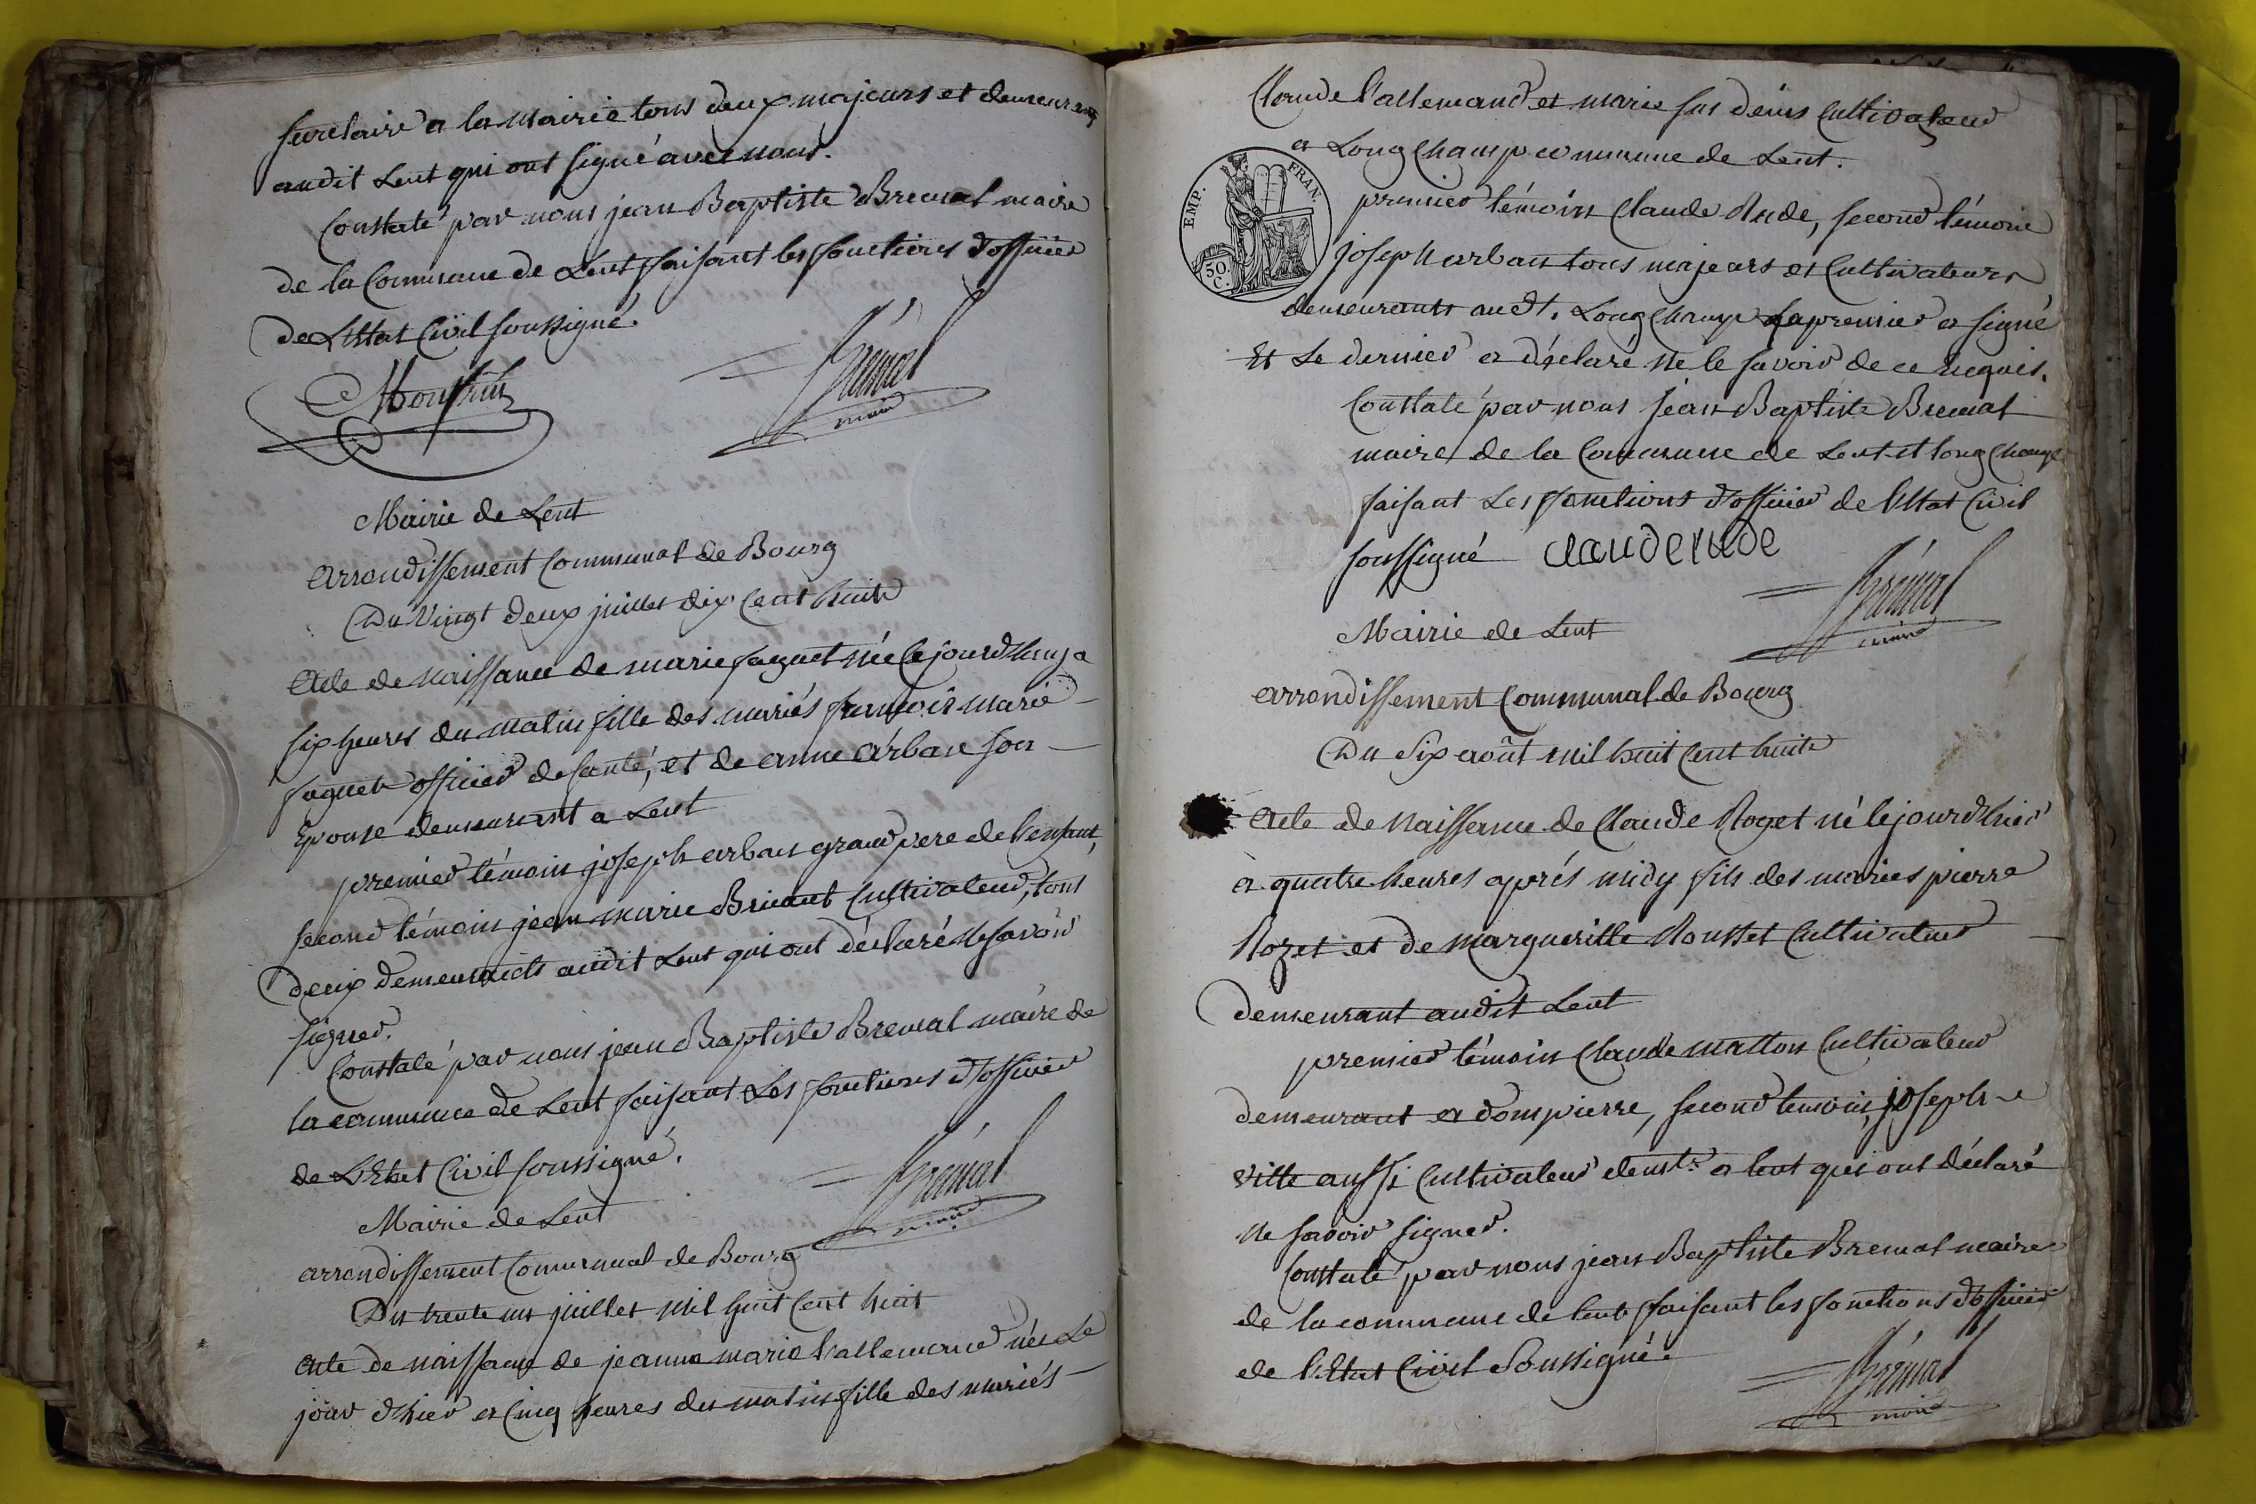 secretaire a la Mairie tous deux majeurs et demeurants
audit Lent qui ont signé avec nous.
Constaté par nous jean Baptiste Bremal maire
de la Commune de Lent faisant les fonctions d'officier
de L'Etat Civil soussigné.
Bremal
maire
Mairie de Lent
arrondissement Communal de Bourg
Du Vingt deux juillet dix Cent huit
Acte de Naissance de marie faguet née Cejourd'huy a
six heures du matin fille des mariés françois marie
faguet officier de santé, et de anne Arban son
Epouse demeurant a Lent
premier témoin joseph arban grand pere de l'enfant,
second témoin jean marie Cultivateur, tous
deux demeurants audit Lent qui ont déclaré ne savoir
signer.
Constaté par nous jean Baptiste Bremal maire de
la commune de Lent faisant Les fonctions d'officier
de L'Etat Civil soussigné.
Bremal
maire
Mairie de Lent
arrondissement Communal de Bourg
Du trente un juillet Mil huit Cent huit
Acte de naissance de jeanne marie Lallemand née Le
jour d'hier a Cinq heures du matin fille des mariés
Claude Lallemand et marie denis Cultivateur
a Long Champ commune de Lent.
EMP. FRAN.
50 C.
premier témoin Claude Rude, second témoin
joseph arban tous majeurs et Cultivateurs
demeurants audt. Long Champ Le premier a signé
Et Le dernier a déclaré Ne le savoir de ce requis.
Constaté par nous jean Baptiste Bremal
maire de la Commune de Lent et long Champ
faisant Les fonctions d'officier de l'Etat Civil
soussigné clauderude
Bremal
maire
Mairie de Lent
arrondissement Communal de Bourg
Du Six août mil huit Cent huit
Acte de Naissance de Claude Rozet né le jour d'hier
à quatre heures après midy fils des mariés pierre
Rozet et de Margueritte Rousset Cultivateur
demeurant audit Lent
premier témoin Claude matton Cultivateur
demeurant a dompierre, second temoin joseph
Vitte aussi Cultivateur demt. a lent qui ont déclaré
Ne savoir signer.
Constaté par nous jean Baptiste Bremal maire
de la commune de lent faisant les fonctions d'officier
de l'Etat Civil Soussigné.
Bremal
maire